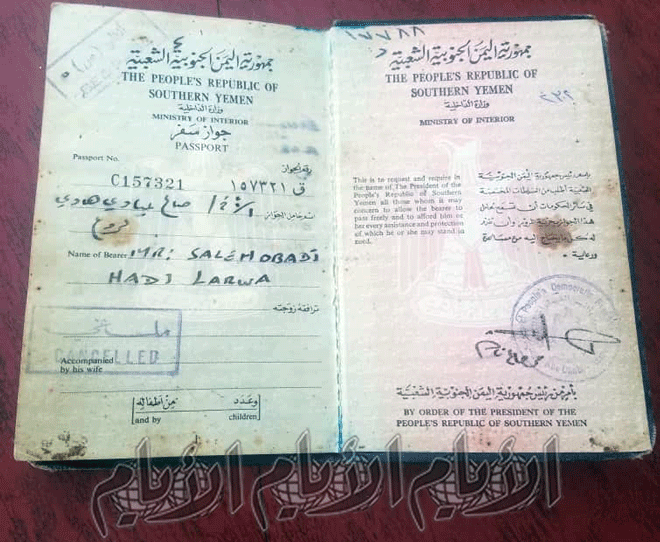 جمهورية اليمن الجنوبية الشعبية
THE PEOPLE'S REPUBLIC OF
SOUTHERN YEMEN
وزارة الداخلية
MINISTRY OF INTERIOR
جواز سفر
PASSPORT
Passport No.
رقم الجواز
C157321
ق ١٥٧٣٢١
اسم حامل الجواز
صالح عبادي هادي
Name of Bearer MR: SALEH OBADI
HADI LARWA
ترافقه زوجته
ملغي
CANCELLED
Accompanied
by his wife
وعدد من أطفاله
and by children
١٧٧٨٨
جمهورية اليمن الجنوبية الشعبية
THE PEOPLE'S REPUBLIC OF
SOUTHERN YEMEN
وزارة الداخلية
MINISTRY OF INTERIOR
٢٣٢
This is to request and require in
the name of The President of the
People's Republic of Southern
Yemen all those whom it may
concern to allow the bearer to
pass freely and to afford him or
her every assistance and protection
of which he or she may stand in
need.
باسم رئيس جمهورية اليمن الجنوبية
الشعبية أطلب من السلطات المختصة
هذا الجواز بحرية المرور وأن
له كل ما يحتاج إليه من مساعدة
ورعاية.
People's Democratic
بأمر من رئيس جمهورية اليمن الجنوبية الشعبية
BY ORDER OF THE PRESIDENT OF THE
PEOPLE'S REPUBLIC OF SOUTHERN YEMEN
الأيام الأيام الأيام الأيام